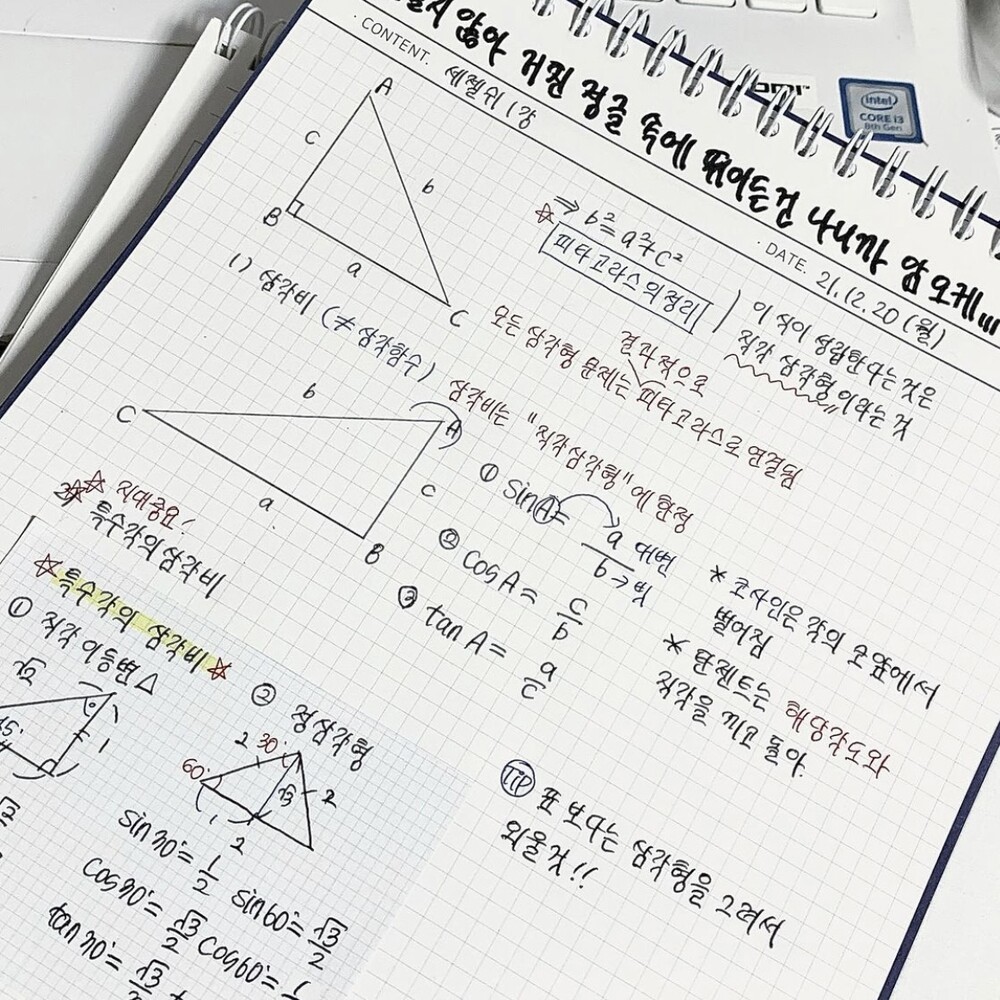 않아 거친 정글 속에 뛰어든건 나니까 암오케...
CONTENT. 세젤쉬 1강
DATE. 21.12.20 (월)
A
c
b
B
a
C
⇒ b² = a² + c²
☆ 피타고라스의 정리
이 식이 성립한다는 것은
직각 삼각형이라는 것
결과적으로
모든 삼각형 문제는 피타고라스로 연결됨
1) 삼각비 (≠삼각함수)
삼각비는 "직각삼각형"에 한정
C
b
A
c
a
B
① sinA = a/b 대변 → 빗
② cosA = c/b
③ tanA = a/c
* 코사인은 각의 코앞에서
벌어짐
* 탄젠트는 해당각도와
직각을 끼고 돌아.
☆☆ 지대중요!
2) 특수각의 삼각비
☆ 특수각의 삼각비 ☆
① 직각이등변△
√2
45°
1
② 정삼각형
2
30°
60°
√3
2
1
2
sin30° = 1/2
sin60° = √3/2
cos30° = √3/2
cos60° = 1/
tan30° = √3/
TIP 표 보다는 삼각형을 그려서
외울 것!!
intel
CORE i3
8th Gen